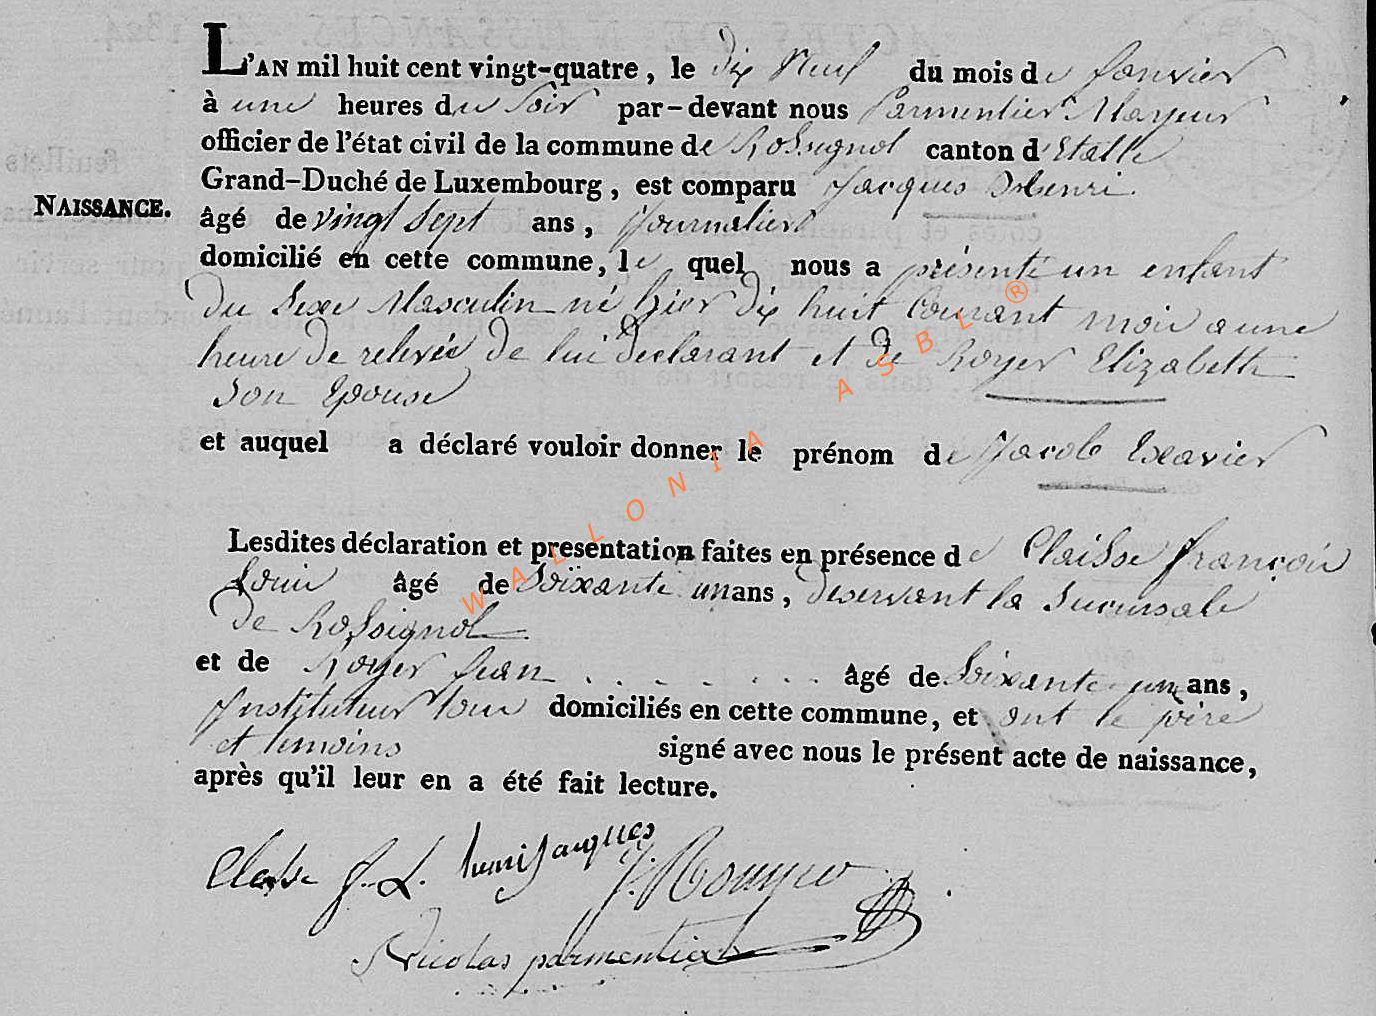 L'AN mil huit cent vingt-quatre, le dix Neuf du mois de Janvier
à une heures du Soir par-devant nous Parmentier Mayeur
officier de l'état civil de la commune de Rossignol canton d'Etalle
Grand-Duché de Luxembourg, est comparu Jacques Henri
NAISSANCE.
âgé de vingt Sept ans, Journalier
domicilié en cette commune, le quel nous a présenté un enfant
du Sexe Masculin né hier dix huit Courant mois a une
heure de relevée de lui declarant et de Royer Elizabeth
Son Epouse
et auquel a déclaré vouloir donner le prénom de Jacob Exavier
Lesdites déclaration et presentation faites en présence de Claisse françois
Louis âgé de Soixante un ans, deservant la Sucursale
de Rossignol
et de Royer Jean . . . . . . . âgé de Soixante un ans,
Instituteur tous domiciliés en cette commune, et ont le père
et temoins signé avec nous le présent acte de naissance,
après qu'il leur en a été fait lecture.
Claisse f. L. henri Jacques J. Rouyer
Nicolas parmentier
WALLONIA ASBL ®